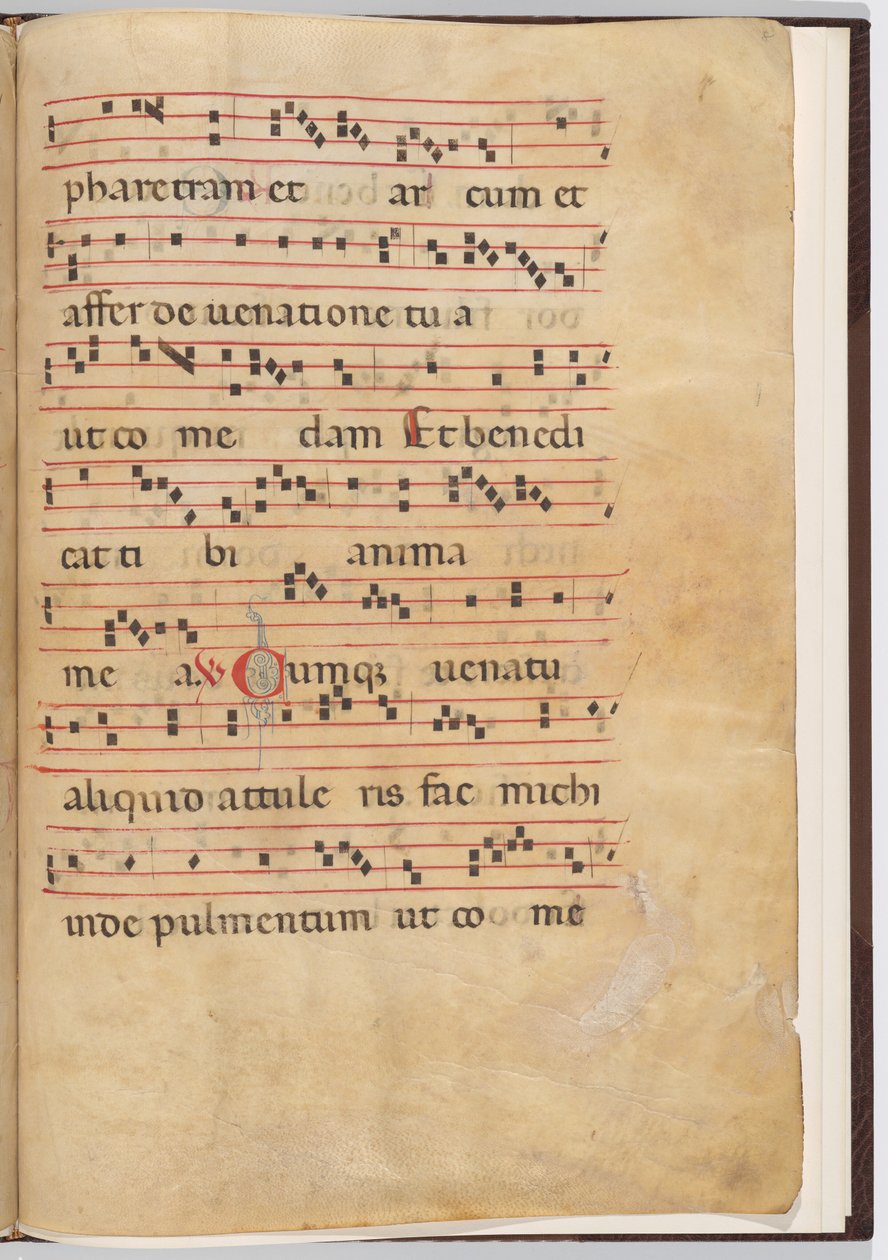 pharetram et ar cum et
affer de uenatione tu a
ut co me dam Et benedi
cat ti bi anima
me a. V Cumqꝫ uenatu
aliquid attule ris fac michi
inde pulmentum ut co me